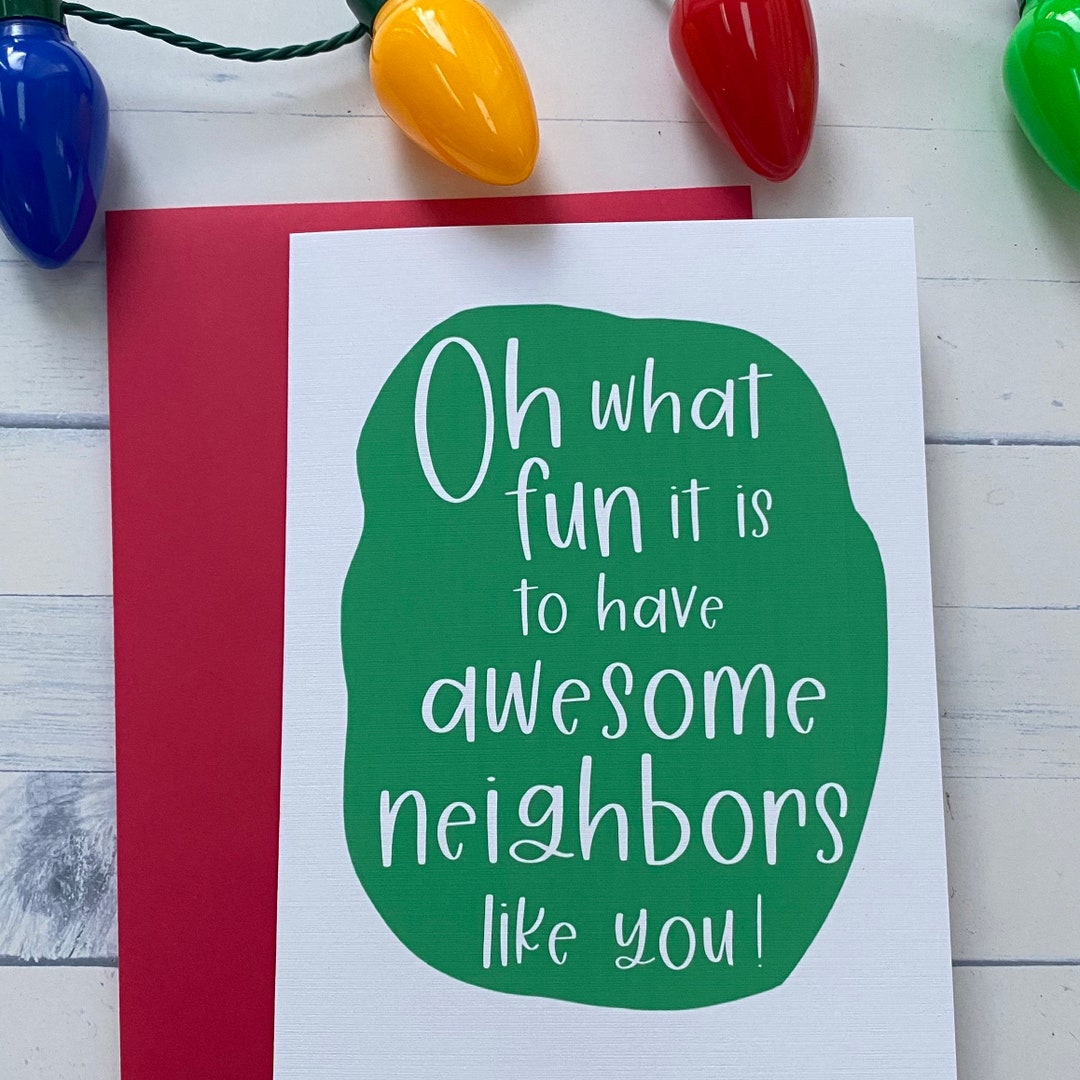 Oh what
fun it is
to have
awesome
neighbors
like you!